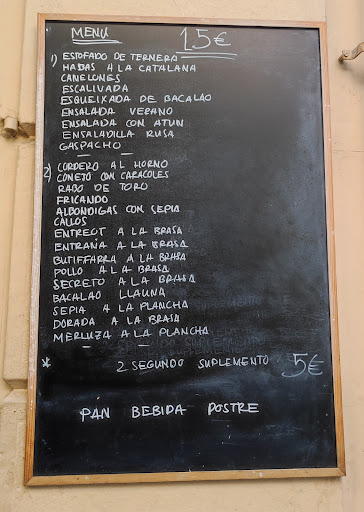 MENU 15€
1) ESTOFADO DE TERNERA
HABAS A LA CATALANA
CANELONES
ESCALIVADA
ESQUEIXADA DE BACALAO
ENSALADA VERANO
ENSALADA CON ATUN
ENSALADILLA RUSA
GASPACHO
2) CORDERO AL HORNO
CONEJO CON CARACOLES
RABO DE TORO
FRICANDO
ALBONDIGAS CON SEPIA
CALLOS
ENTRECOT A LA BRASA
ENTRAÑA A LA BRASA
BUTIFFARRA A LA BRASA
POLLO A LA BRASA
SECRETO A LA BRASA
BACALAO LLAUNA
SEPIA A LA PLANCHA
DORADA A LA BRASA
MERLUZA A LA PLANCHA
* 2 SEGUNDO SUPLEMENTO 5€
PAN BEBIDA POSTRE